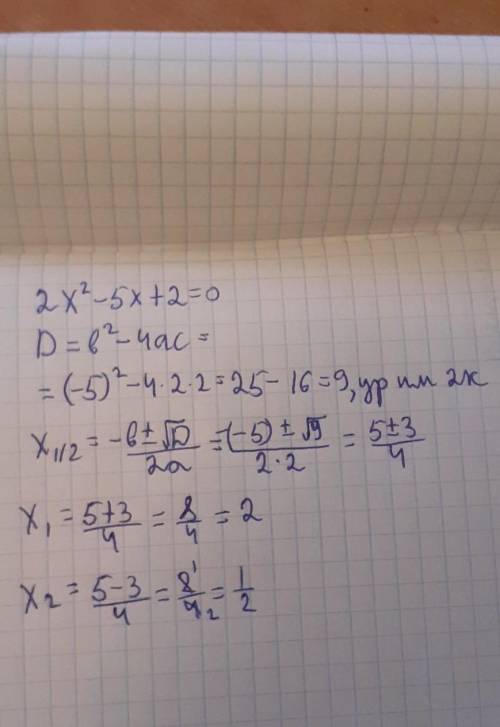 2x² - 5x + 2 = 0
D = b² - 4ac =
= (-5)² - 4·2·2 = 25 - 16 = 9, ур им 2к
x₁/₂ = -b ± √D / 2a = -(-5) ± √9 / 2·2 = 5±3 / 4
x₁ = 5+3 / 4 = 8/4 = 2
x₂ = 5-3 / 4 = 8¹/4₂ = 1/2